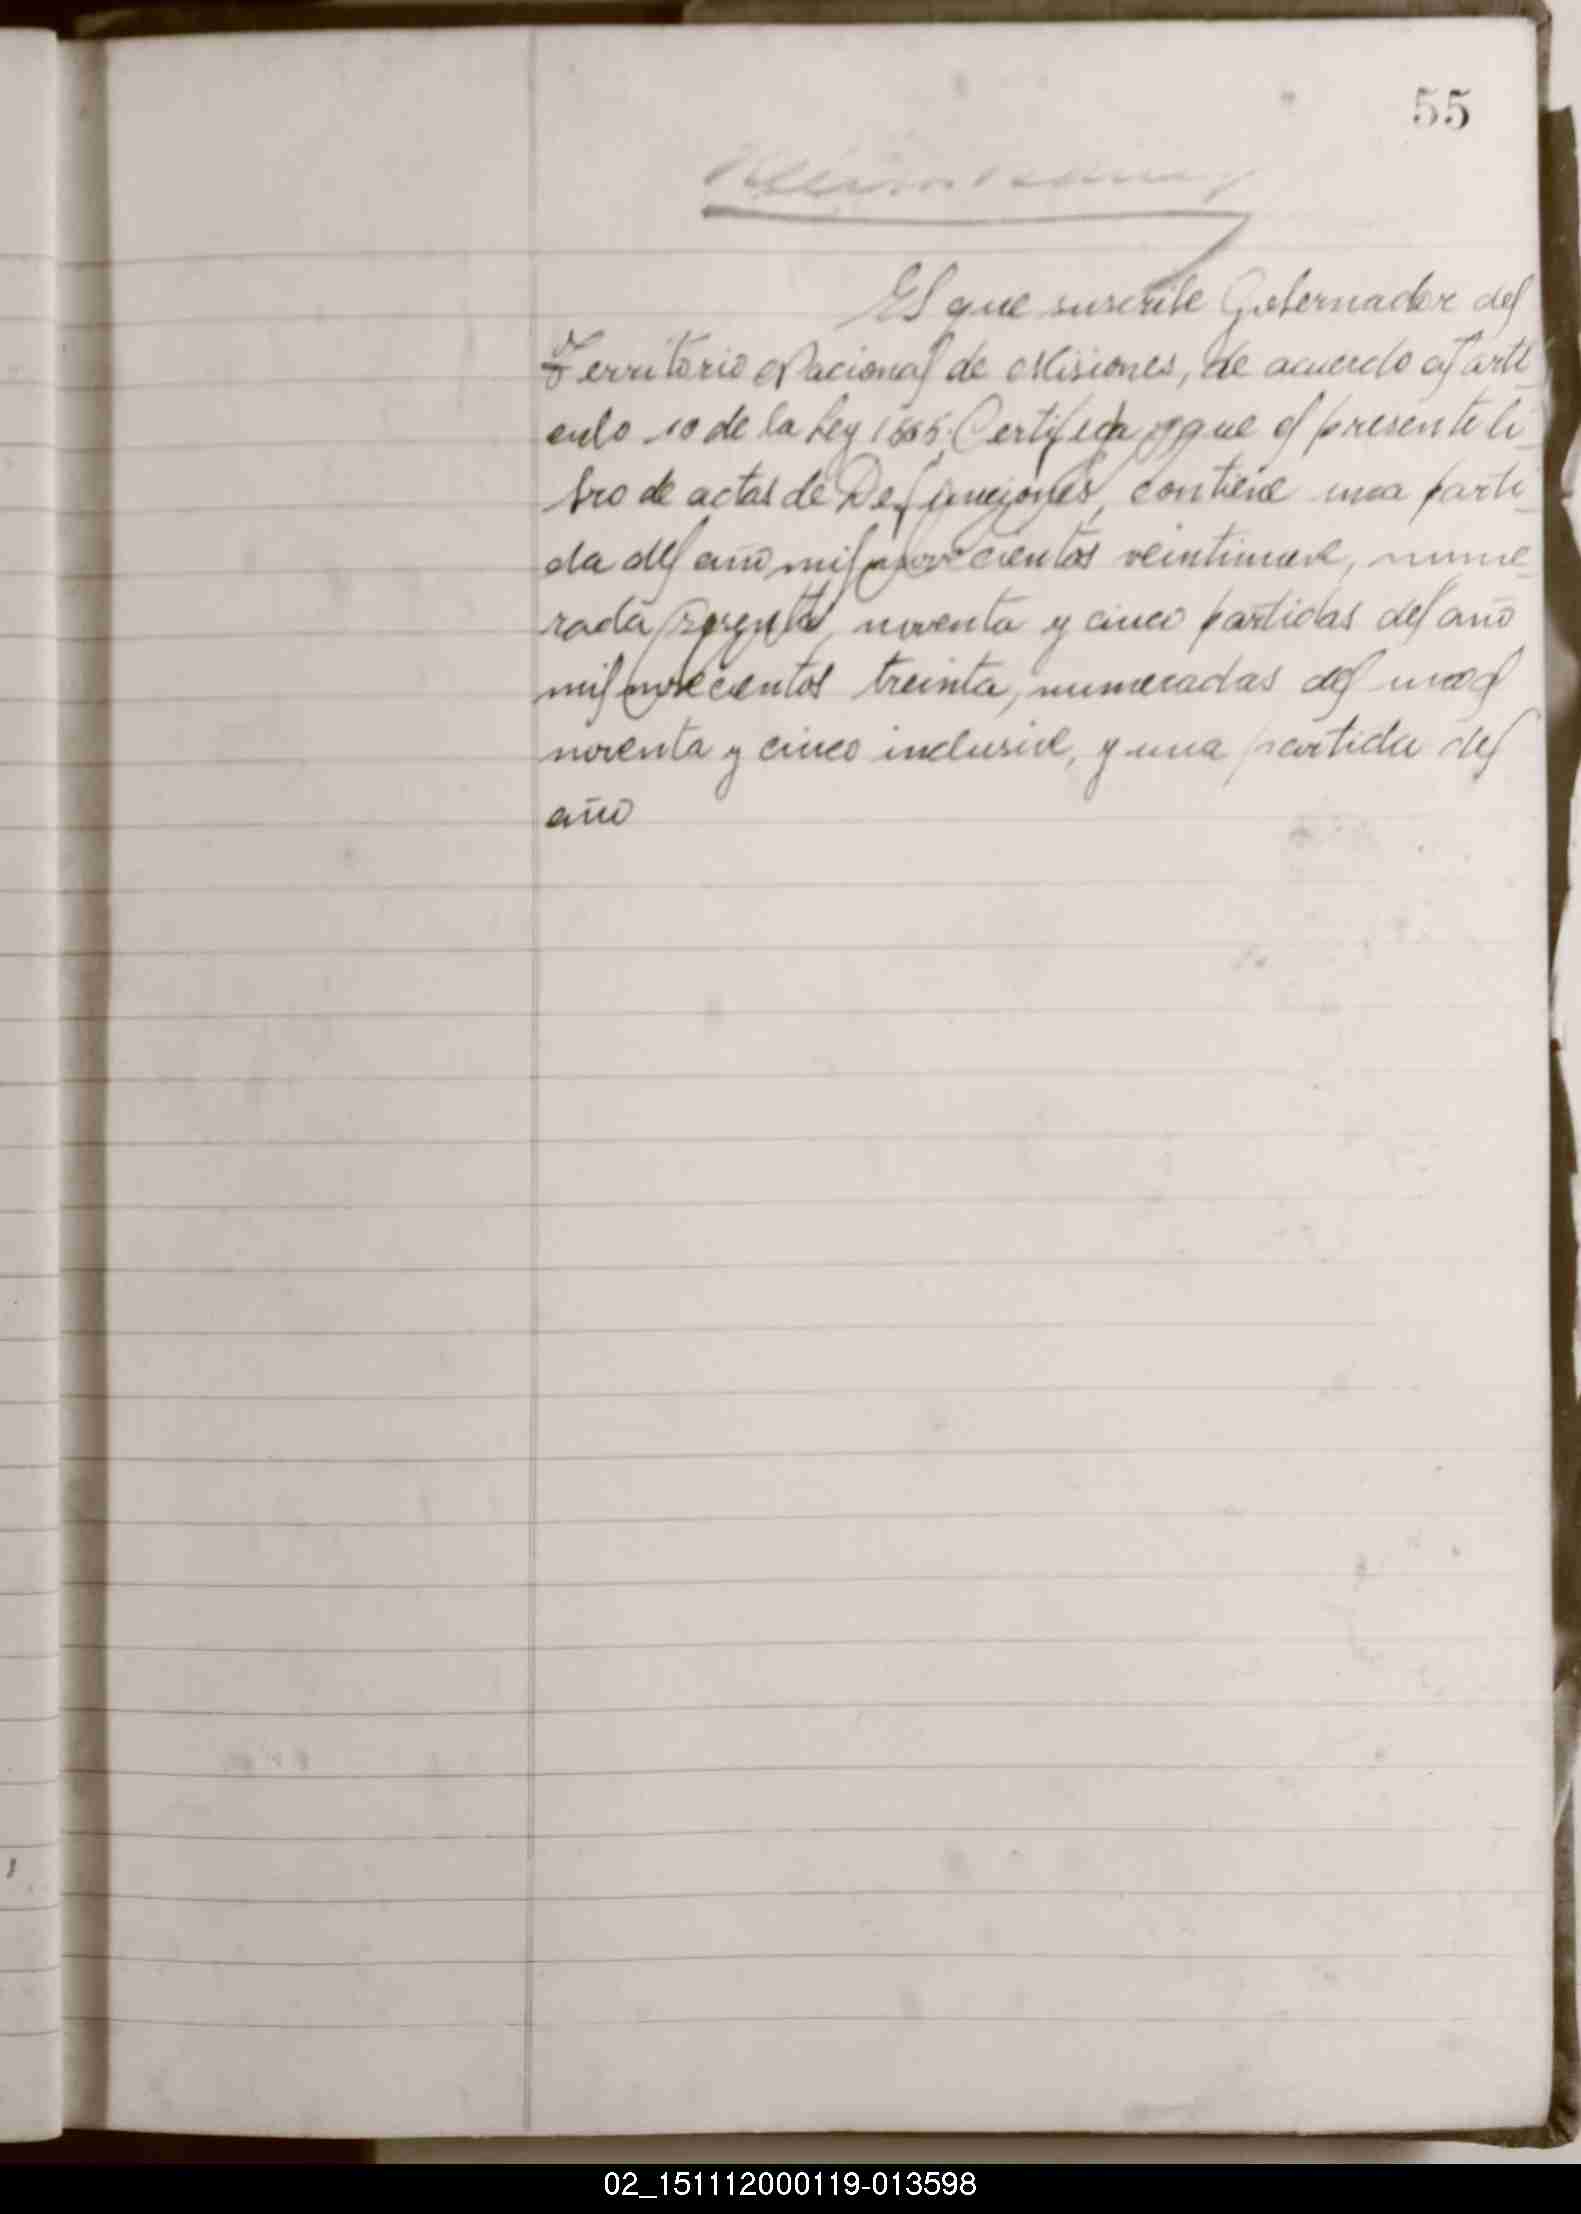 55
El que suscribe Gobernador del
Territorio Nacional de Misiones, de acuerdo al artí-
culo 10 de la Ley 1565, Certifica que el presente li-
bro de actas de Defunciones, contiene una parti-
da del año mil novecientos veintinueve, nume-
rada sesenta, noventa y cinco partidas del año
mil novecientos treinta, numeradas del uno al
noventa y cinco inclusive, y una partida del
año
02_151112000119-013598